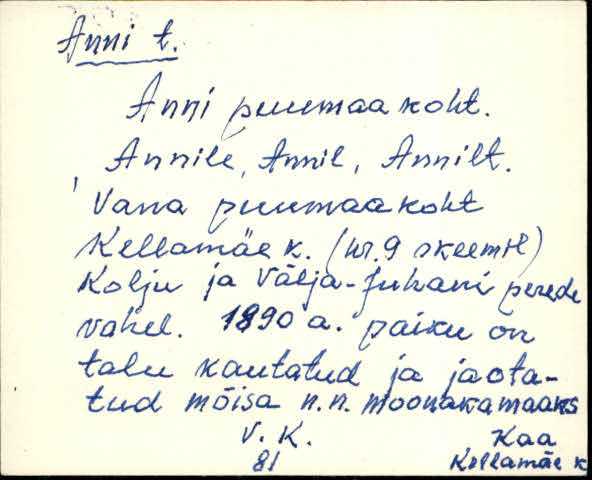 Anni t.
Anni puumaa koht.
Annile, Annil, Annilt.
Vana puumaakoht
Kellamäe k. (nr. 9 skeemil)
Kolju ja Välja-Juhani perede
vahel. 1890 a. paiku on
talu kautatud ja jaota-
tud mõisa n.n. moonakamaaks
V. K.
Kaa
81
Kellamäe k